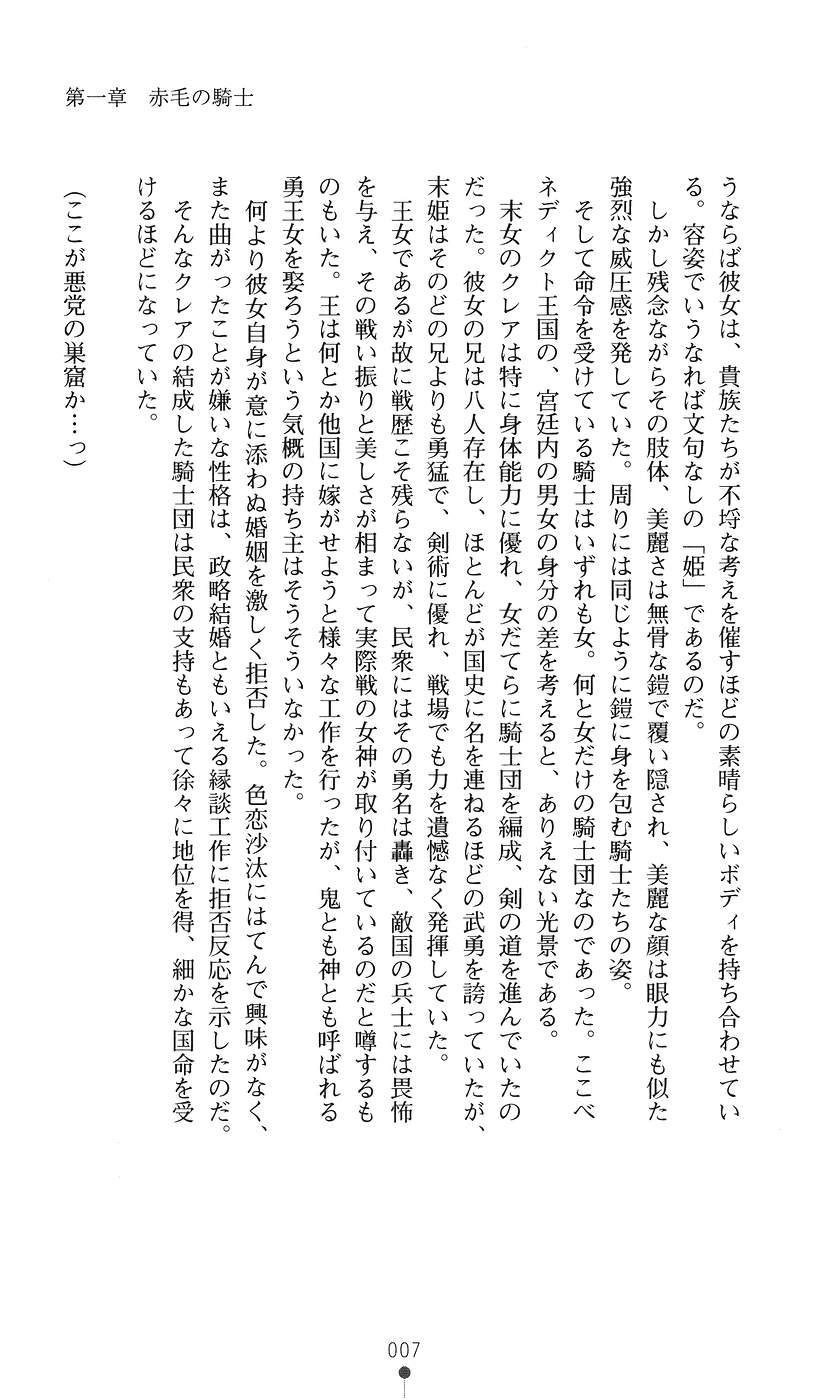 第一章　赤毛の騎士
うならば彼女は、貴族たちが不埒な考えを催すほどの素晴らしいボディを持ち合わせてい
る。容姿でいうなれば文句なしの「姫」であるのだ。
　しかし残念ながらその肢体、美麗さは無骨な鎧で覆い隠され、美麗な顔は眼力にも似た
強烈な威圧感を発していた。周りには同じように鎧に身を包む騎士たちの姿。
　そして命令を受けている騎士はいずれも女。何と女だけの騎士団なのであった。ここベ
ネディクト王国の、宮廷内の男女の身分の差を考えると、ありえない光景である。
　末女のクレアは特に身体能力に優れ、女だてらに騎士団を編成、剣の道を進んでいたの
だった。彼女の兄は八人存在し、ほとんどが国史に名を連ねるほどの武勇を誇っていたが、
末姫はそのどの兄よりも勇猛で、剣術に優れ、戦場でも力を遺憾なく発揮していた。
　王女であるが故に戦歴こそ残らないが、民衆にはその勇名は轟き、敵国の兵士には畏怖
を与え、その戦い振りと美しさが相まって実際戦の女神が取り付いているのだと噂するも
のもいた。王は何とか他国に嫁がせようと様々な工作を行ったが、鬼とも神とも呼ばれる
勇王女を娶ろうという気概の持ち主はそうそういなかった。
　何より彼女自身が意に添わぬ婚姻を激しく拒否した。色恋沙汰にはてんで興味がなく、
また曲がったことが嫌いな性格は、政略結婚ともいえる縁談工作に拒否反応を示したのだ。
　そんなクレアの結成した騎士団は民衆の支持もあって徐々に地位を得、細かな国命を受
けるほどになっていた。
（ここが悪党の巣窟か…っ）
007